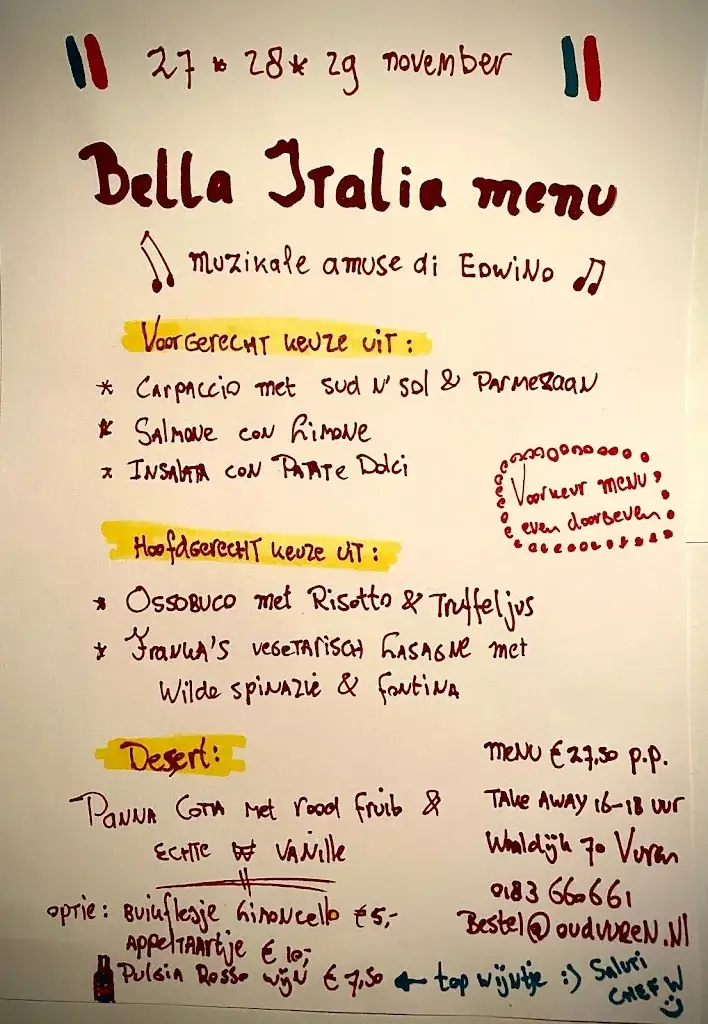 27 * 28 * 29 november
Bella Italia menu
muzikale amuse di Edwino
Voorgerecht keuze uit:
* Carpaccio met sud n' sol & Parmezaan
* Salmone con Limone
* Insalata con Patate Dolci
Voorkeur menu
even doorgeven
Hoofdgerecht keuze uit:
* Ossobuco met Risotto & Truffeljus
* Franka's vegetarisch Lasagne met
Wilde spinazie & fontina
Desert:
Panna Cotta met rood fruit &
echte vanille
menu € 27,50 p.p.
Take away 16-18 uur
Waaldijk 70 Vuren
0183 660661
Bestel@oudvuren.nl
optie: Buikflesje Limoncello € 5,-
Appeltaartje € 10,-
Puglia Rosso wijn € 7,50 ← top wijntje :) Saluti
Chef W